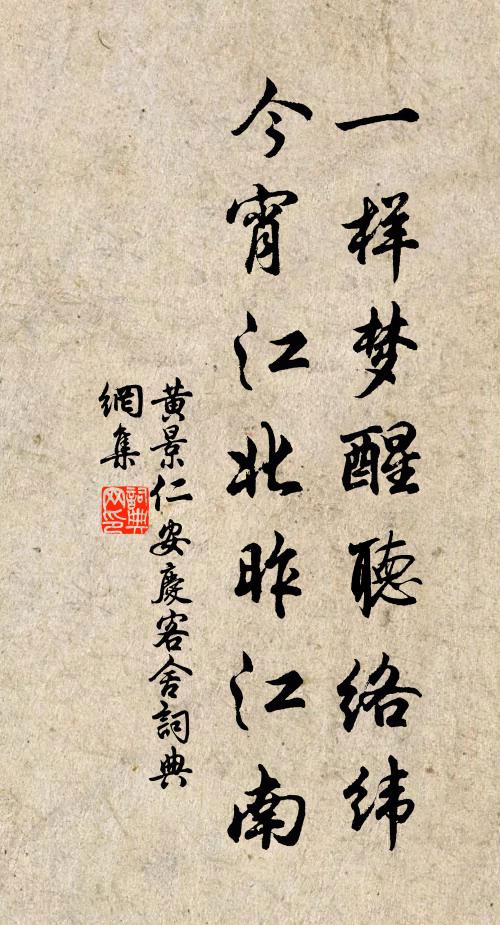 一样梦醒聽络纬
今宵江北昨江南
黄景仁安慶客舍詞典
網集
詞典網印